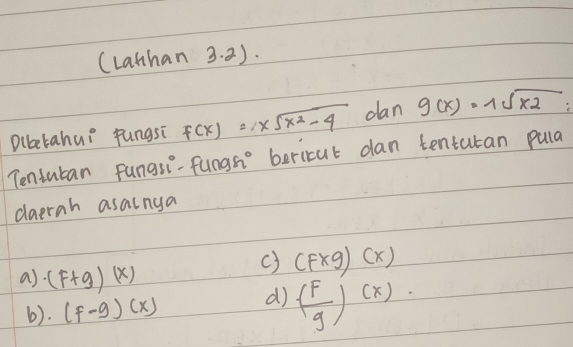 (Latihan 3.2).
Diketahui fungsi f(x) = x√x²-4 dan g(x) = 1√x2 ;
Tentukan fungsi-fungsi berikut dan tentukan pula
daerah asalnya
a). (f+g) (x)
c) (f×g) (x)
b). (f-g) (x)
d) (f/g) (x).